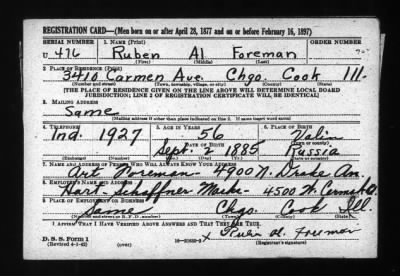 REGISTRATION CARD—(Men born on or after April 28, 1877 and on or before February 16, 1897)
SERIAL NUMBER 1. NAME (Print) ORDER NUMBER
U 416 Ruben Al Foreman
(First) (Middle) (Last)
2. PLACE OF RESIDENCE (Print)
3410 Carmen Ave. Chgo. Cook Ill.
(Number and street) (Town, township, village, or city) (County) (State)
[THE PLACE OF RESIDENCE GIVEN ON THE LINE ABOVE WILL DETERMINE LOCAL BOARD
JURISDICTION; LINE 2 OF REGISTRATION CERTIFICATE WILL BE IDENTICAL]
3. MAILING ADDRESS
Same
[Mailing address if other than place indicated on line 2. If same insert word same]
4. TELEPHONE 5. AGE IN YEARS 6. PLACE OF BIRTH
56
DATE OF BIRTH
Ind. 1927 Sept. 2 1885 Russia
7. NAME AND ADDRESS OF PERSON WHO WILL ALWAYS KNOW YOUR ADDRESS
Art Foreman - 4900 N. Drake Av.
8. EMPLOYER'S NAME AND ADDRESS
Hart - Schaffner Marks - 4500 W.
9. PLACE OF EMPLOYMENT OR BUSINESS
Same Chgo. Cook Ill.
(Number and street or R. F. D. number) (Town) (County) (State)
I AFFIRM THAT I HAVE VERIFIED ABOVE ANSWERS AND THAT THEY ARE TRUE.
D. S. S. Form 1
(Revised 4-1-42) (over) x Ruben Al. Foreman
(Registrant's signature)